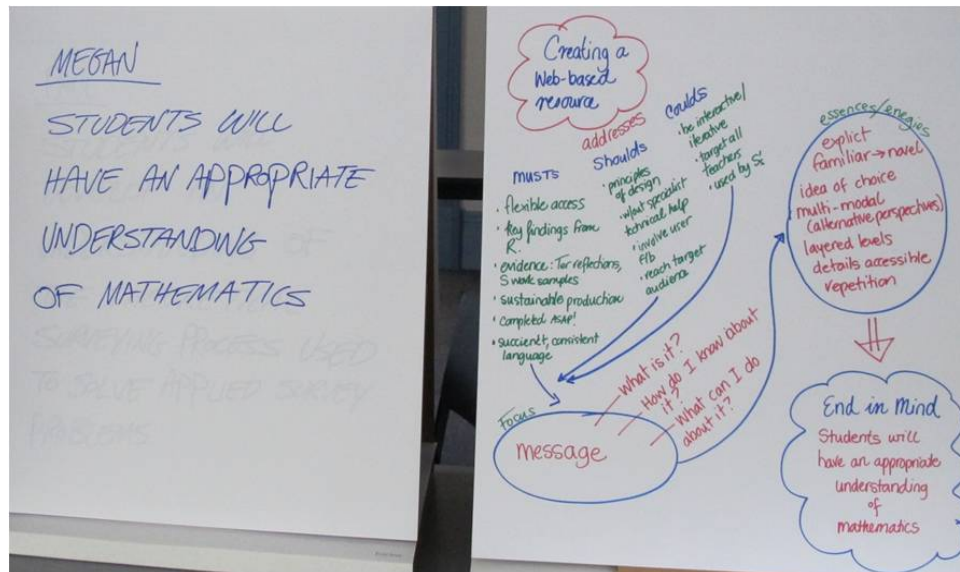 MEGAN
STUDENTS WILL
HAVE AN APPROPRIATE
UNDERSTANDING
OF MATHEMATICS
SURVEYING PROCESS USED
TO SOLVE APPLIED SURVEY
PROBLEMS
Creating a
Web-based
resource
addresses
musts
• flexible access
• key findings from
R.
• evidence: Tor reflections,
S work samples
• sustainable production
• completed ASAP!
• succient, consistent
language
Shoulds
• principles
of design
• w/out specialist
technical help
• involve user
f/b
• reach target
audience
Coulds
• be interactive/
iterative
• target all
teachers
• used by Ss
Focus
message
What is it?
How do I know about
it?
What can I do
about it?
essences/energies
explict
familiar → novel
idea of choice
multi-modal
(alternative perspectives)
layered levels
details accessible
repetition
End in Mind
Students will
have an appropriate
understanding
of
mathematics